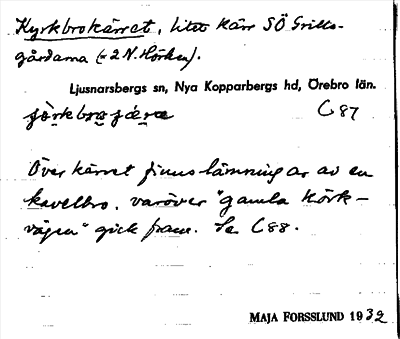 Kyrkbrokärret, litet kärr SÖ Grills-
gårdarna (=2 N. Hörken).
Ljusnarsbergs sn, Nya Kopparbergs hd, Örebro län.
C 87
Över kärret finns lämningar av en
kavelbro, varöver "gamla körk-
vägen" gick fram. Se C 88.
MAJA FORSSLUND 1932